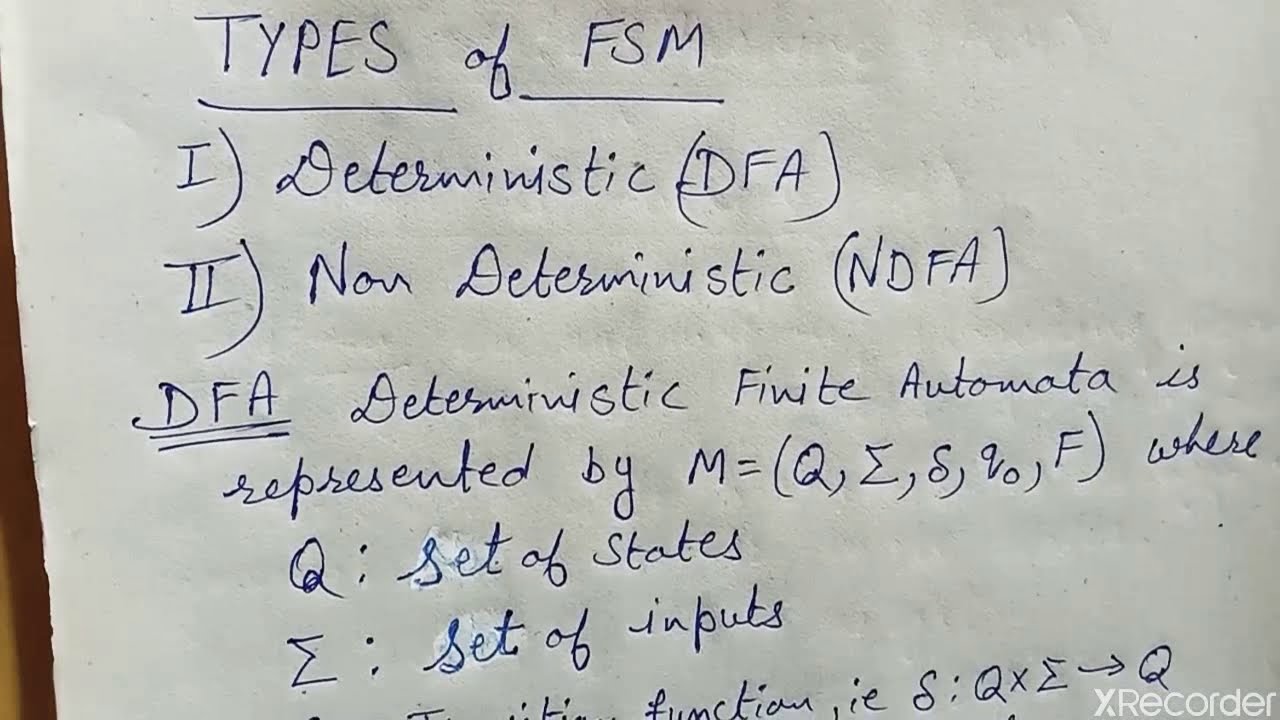 TYPES of FSM
I) Deterministic (DFA)
II) Non Deterministic (NDFA)
DFA Deterministic Finite Automata is
represented by M=(Q, Σ, δ, q₀, F) where
Q : set of states
Σ : set of inputs
function, ie δ : Q×Σ→Q
XRecorder